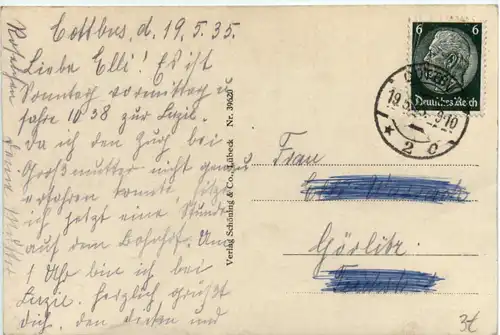 Cottbus, d. 19.5.35.
Liebe Elli! Es ist
Sonntag vormittag u.
fahre 10 38 zur Luzie.
Da ich den Zug bei
Großmutter nicht genau
erfahren konnte, sitze
ich jetzt eine Stunde
auf dem Bahnhof. Um
1 Uhr bin ich bei
Luzie. Herzlich grüßt
dich, den dicken und
Verlag Schöning & Co., Lübeck Nr. 39620
6 6
Deutsches Reich
19.5.35. 9-10
* 2 c
Frau
Görlitz.
3€